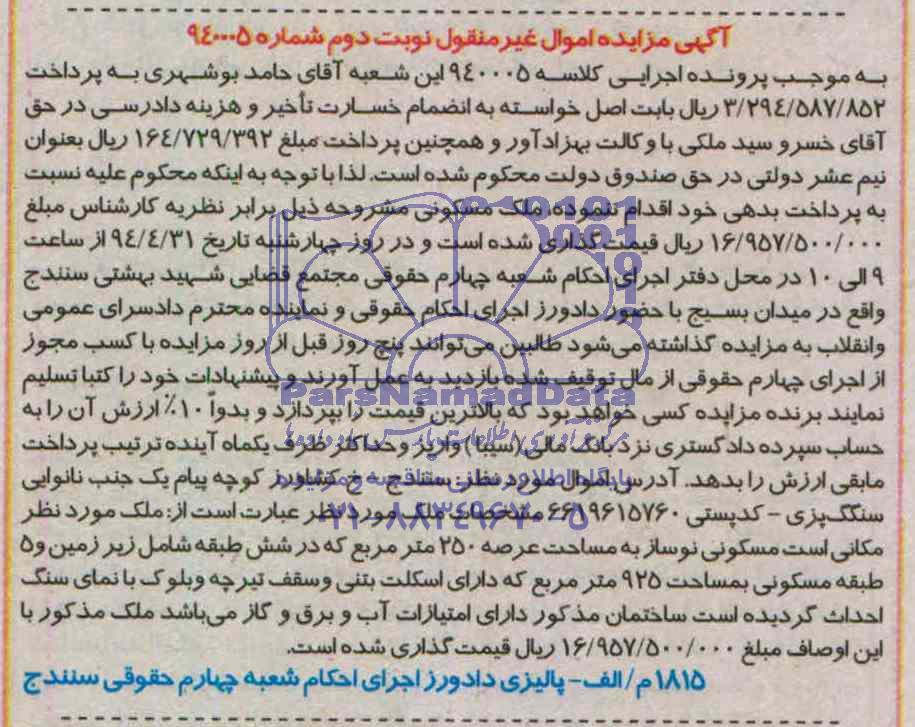 آگهی مزایده اموال غیر منقول نوبت دوم شماره ۹۴۰۰۰۵
به موجب پرونده اجرایی کلاسه ۹۴۰۰۰۵ این شعبه آقای حامد بوشهری به پرداخت
۳/۲۹۴/۵۸۷/۸۵۲ ریال بابت اصل خواسته به انضمام خسارت تأخیر و هزینه دادرسی در حق
آقای خسرو سید ملکی با وکالت بهزاد آور و همچنین پرداخت مبلغ ۱۶۴/۷۲۹/۳۹۲ ریال بعنوان
نیم عشر دولتی در حق صندوق دولت محکوم شده است. لذا با توجه به اینکه محکوم علیه نسبت
به پرداخت بدهی خود اقدام ننموده، ملک مسکونی مشروحه ذیل برابر نظریه کارشناس مبلغ
۱۶/۹۵۷/۵۰۰/۰۰۰ ریال قیمت گذاری شده است و در روز چهارشنبه تاریخ ۹۴/۴/۳۱ از ساعت
۹ الی ۱۰ در محل دفتر اجرای احکام شعبه چهارم حقوقی مجتمع قضایی شهید بهشتی سنندج
واقع در میدان بسیج با حضور دادورز اجرای احکام حقوقی و نماینده محترم دادسرای عمومی
وانقلاب به مزایده گذاشته می‌شود طالبین می‌توانند پنج روز قبل از روز مزایده با کسب مجوز
از اجرای چهارم حقوقی از مال توقیف شده بازدید به عمل آورند و پیشنهادات خود را کتبا تسلیم
نمایند برنده مزایده کسی خواهد بود که بالاترین قیمت را بپردازد و بدواً ۱۰٪ ارزش آن را به
حساب سپرده دادگستری نزد بانک ملی (سیبا) واریز و حداکثر ظرف یکماه آینده ترتیب پرداخت
مابقی ارزش را بدهد. آدرس اموال مورد نظر: سنندج – خ کشاورز کوچه پیام یک جنب نانوایی
سنگک‌پزی – کدپستی ۶۶۱۹۶۱۵۷۶۰ مشخصات ملک مورد نظر عبارت است از: ملک مورد نظر
مکانی است مسکونی نوساز به مساحت عرصه ۲۵۰ متر مربع که در شش طبقه شامل زیر زمین و۵
طبقه مسکونی بمساحت ۹۲۵ متر مربع که دارای اسکلت بتنی وسقف تیرچه وبلوک با نمای سنگ
احداث گردیده است ساختمان مذکور دارای امتیازات آب و برق و گاز می‌باشد ملک مذکور با
این اوصاف مبلغ ۱۶/۹۵۷/۵۰۰/۰۰۰ ریال قیمت گذاری شده است.
۱۸۱۵م/الف- پالیزی دادورز اجرای احکام شعبه چهارم حقوقی سنندج
ParsNamadData
۰۲۱-۸۸۳۴۹۶۷۰-۵